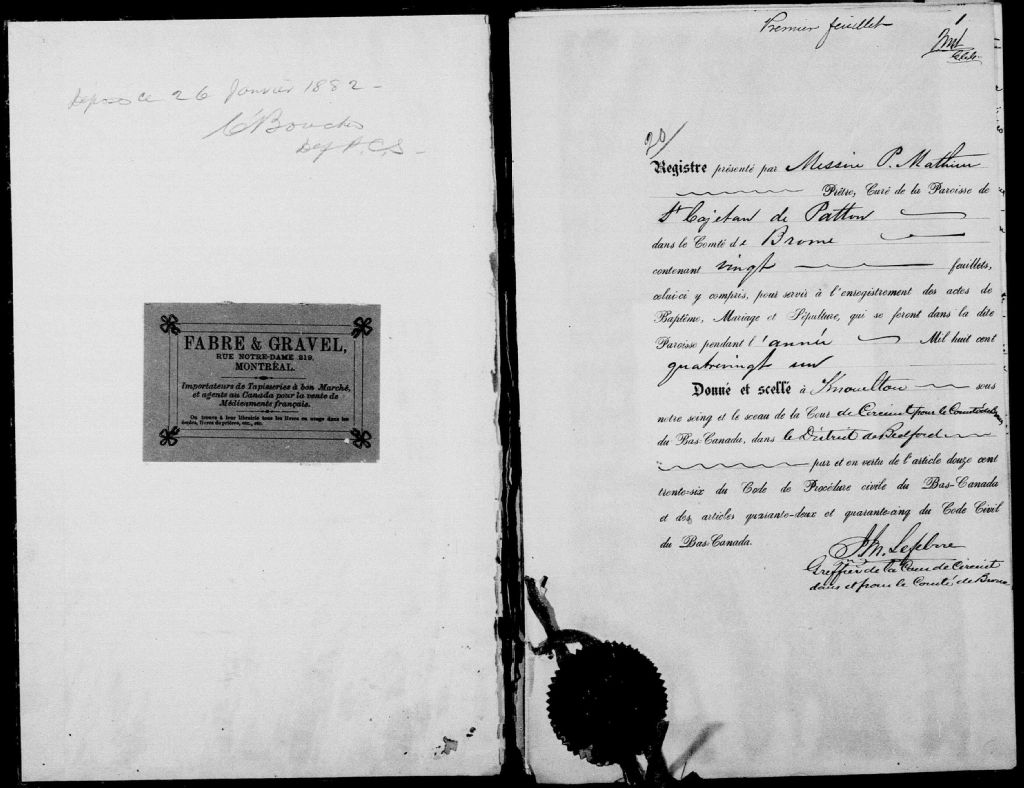 Depose ce 26 Janvier 1882 -
FABRE & GRAVEL,
RUE NOTRE-DAME 219,
MONTRÉAL.
Importateurs de Tapisseries à bon Marché,
et agents au Canada pour la vente de
Médicaments français.
On trouve à leur librairie tous les livres en usage dans les
écoles, livres de prières, etc., etc.
Premier feuillet
1
20
Registre présenté par Messire P. Mathieu
Prêtre, Curé de la Paroisse de
St Cajetan de Patton
dans le Comté de Brome
contenant vingt feuillets,
celui-ci y compris, pour servir à l'enregistrement des actes de
Baptême, Mariage et Sépulture, qui se feront dans la dite
Paroisse pendant l'année Mil huit cent
quatrevingt un
Donné et scellé à Knowlton sous
notre seing et le sceau de la Cour de Circuit pour le Comté de
du Bas-Canada, dans le District de Bedford
par et en vertu de l'article douze cent
trente-six du Code de Procédure civile du Bas-Canada
et des articles quarante-deux et quarante-cinq du Code Civil
du Bas-Canada.
Lefebvre
Greffier de la Cour de Circuit
dans et pour le Comté de Brome